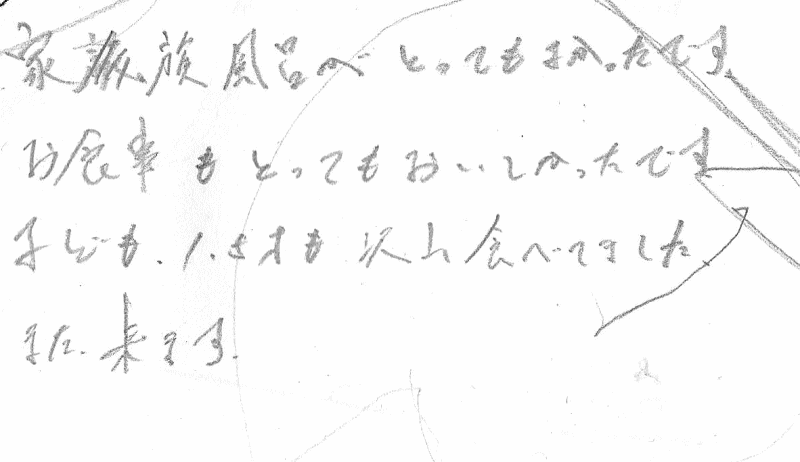 家族族風呂がとってもよかったです。
お食事もとってもおいしかったです
子ども、1.5才も沢山食べてました
また、来ます。